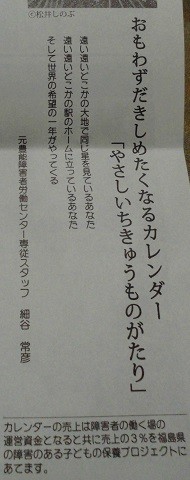 ©松井しのぶ
おもわずだきしめたくなるカレンダー
「やさしいちきゅうものがたり」
遠い遠いどこかの大地で同じ星を見ているあなた
遠い遠いどこかの駅のホームに立っているあなた
そして世界の希望の一年がやってくる
元豊能障害者労働センター専従スタッフ 細谷 常彦
カレンダーの売上は障害者の働く場の
運営資金となると共に売上の3%を福島県
の障害のある子どもの保養プロジェクトに
あてます。